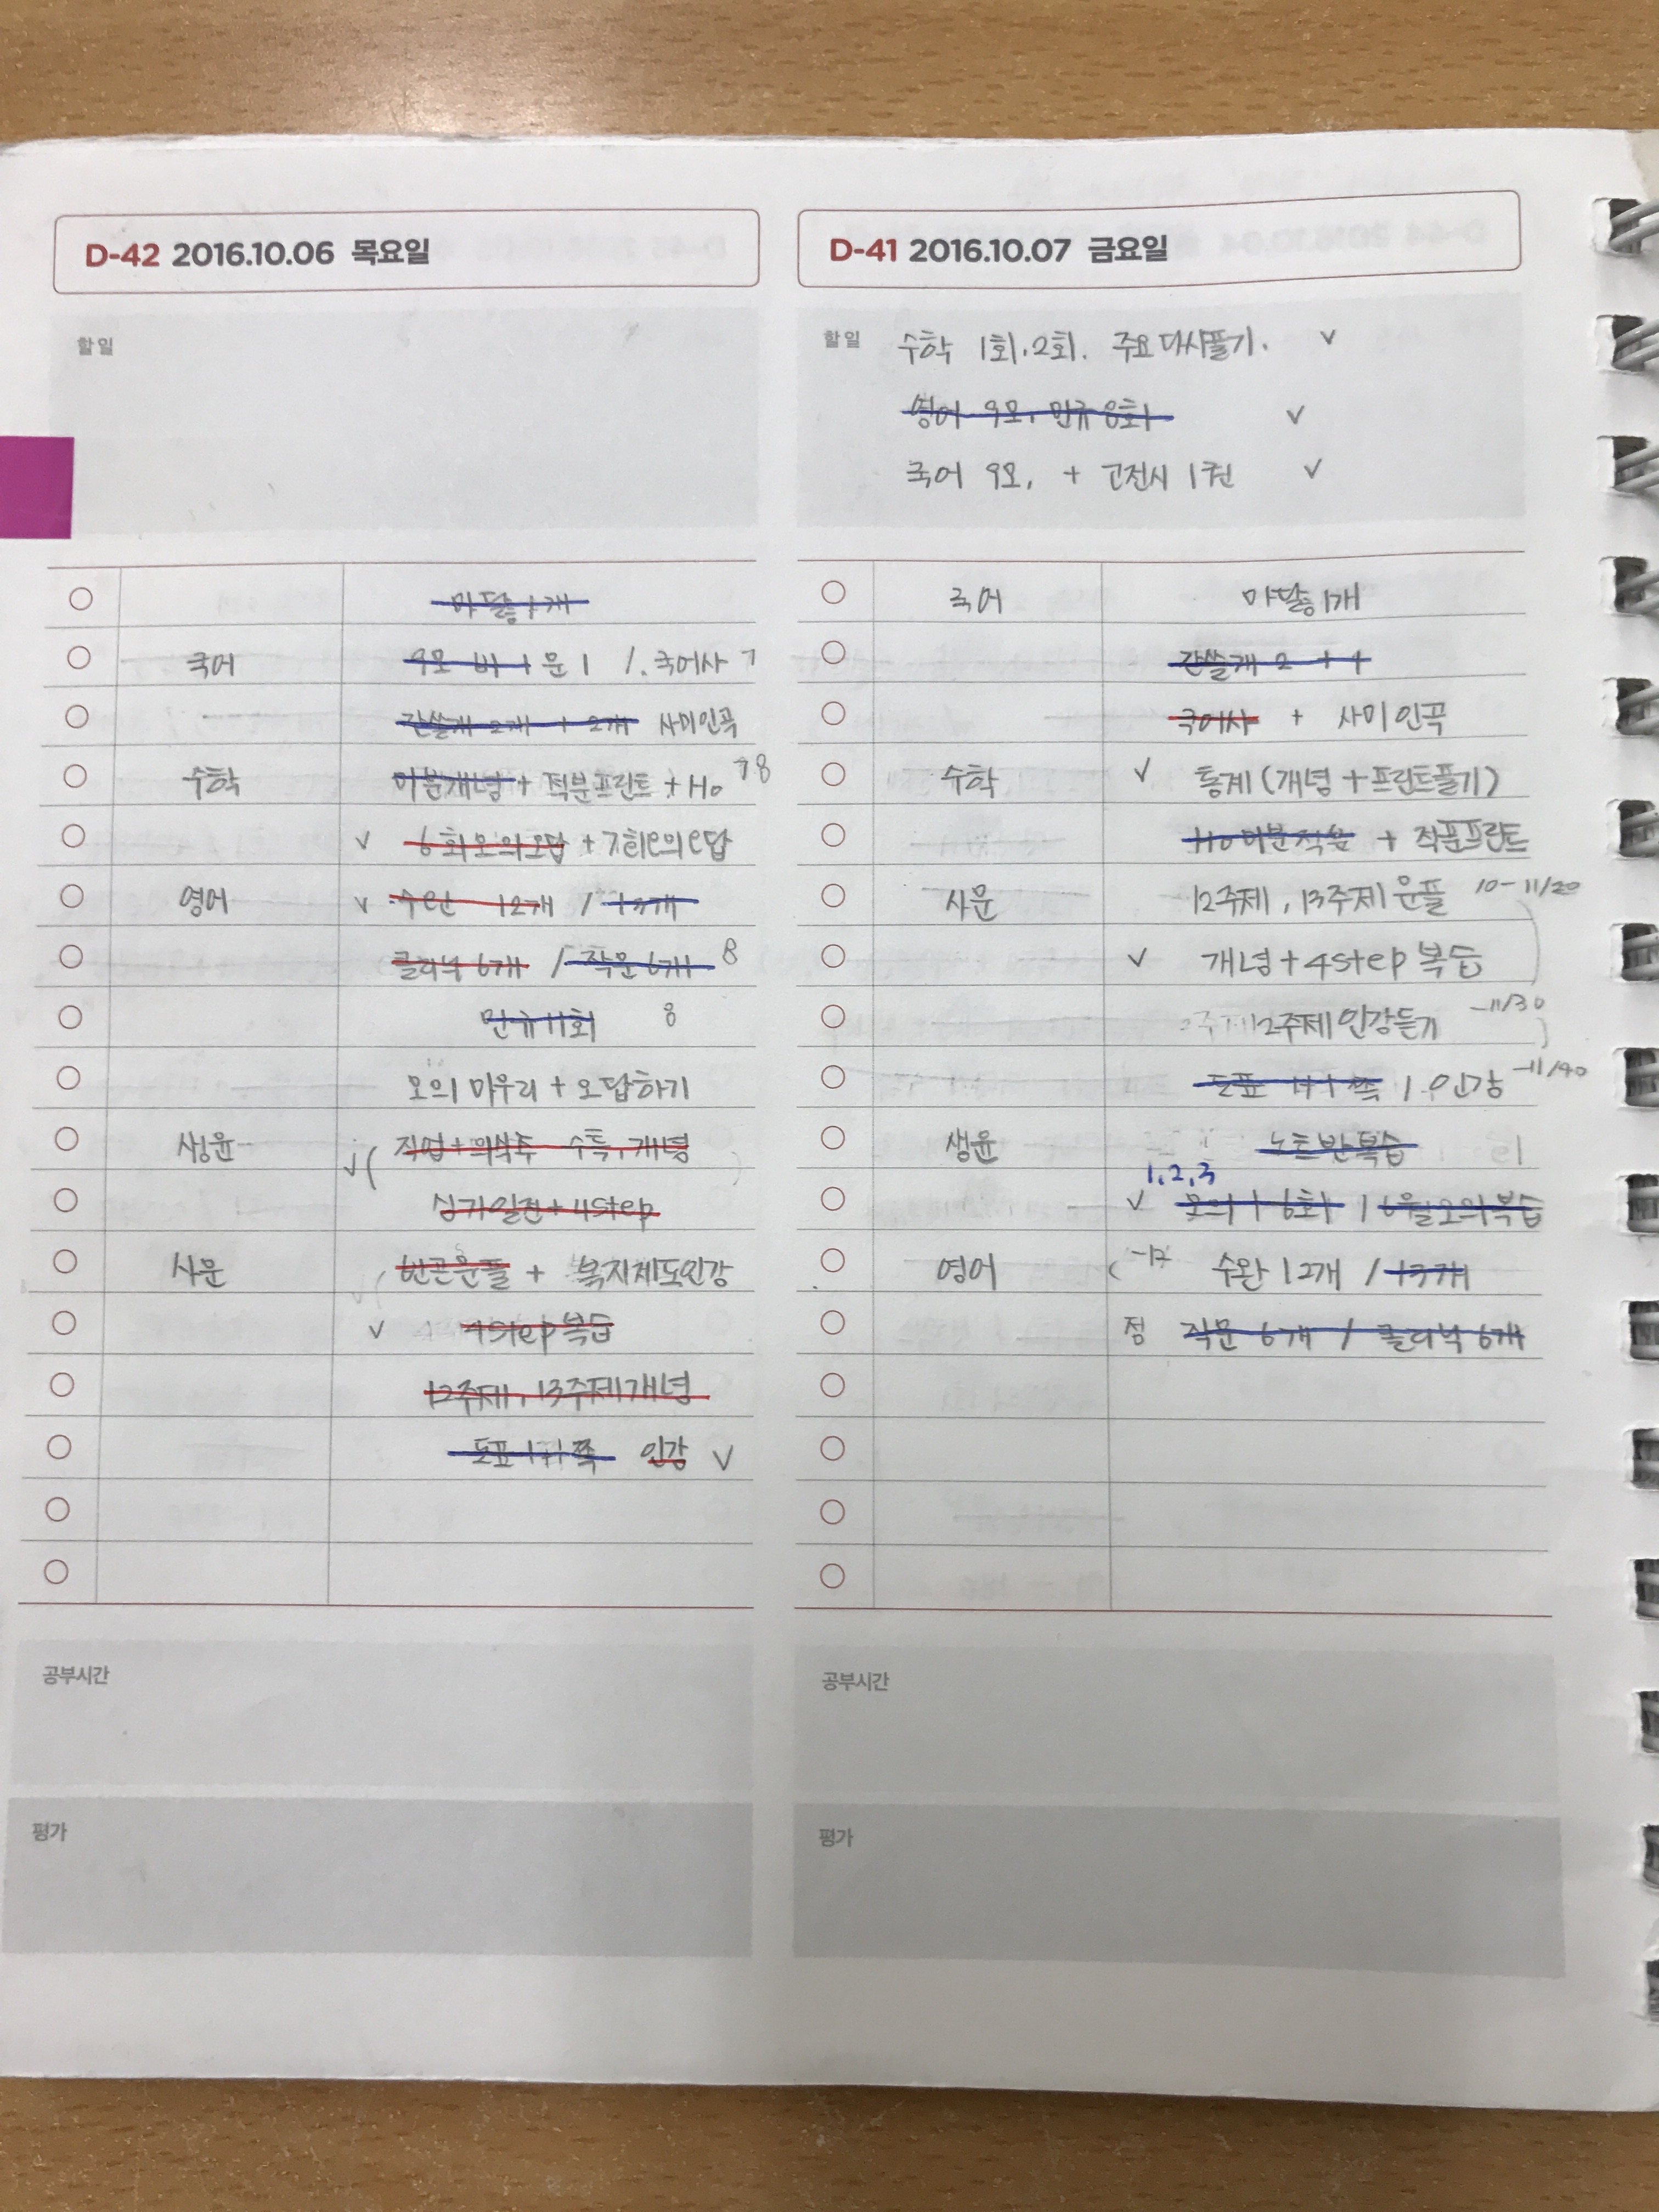 D-42 2016.10.06 목요일
할일
마닳 1개
국어 9모 비 + 문 1 / 국어사 7
간쓸개 2개 + 2개 사미인곡
수학 미분개념 + 적분프린트 + H0 78
6회모의오답 + 7회모의오답
영어 수완 12개 / 13개
클리닉 6개 / 작문 6개 8
만규 11회 8
모의 마무리 + 오답하기
생윤 직업 + 의식주 수특, 개념
심기일전 + 4step
사문 빈곤윤플 + 복지제도인강
4step 복습
12주제, 13주제개념
도표 1+1 쪽 인강
공부시간
평가
D-41 2016.10.07 금요일
할일 수학 1회, 2회. 주요 다시풀기.
영어 9모, 만규 8회
국어 9모, + 고전시 1권
국어 마닳 1개
간쓸개 2 + 1
국어사 + 사미인곡
수학 통계 (개념 + 프린트풀기)
H0 미분적분 + 적분프린트
사문 12주제, 13주제 윤플 10-11/20
개념 + 4step 복습
12주제 인강듣기 -11/30
도표 1+1 쪽 / 인강 -11/40
생윤 노트반복습
1, 2, 3
모의 1 6회 / 6월모의복습
영어 수완 12개 / 13개
점 작문 6개 / 클리닉 6개
공부시간
평가